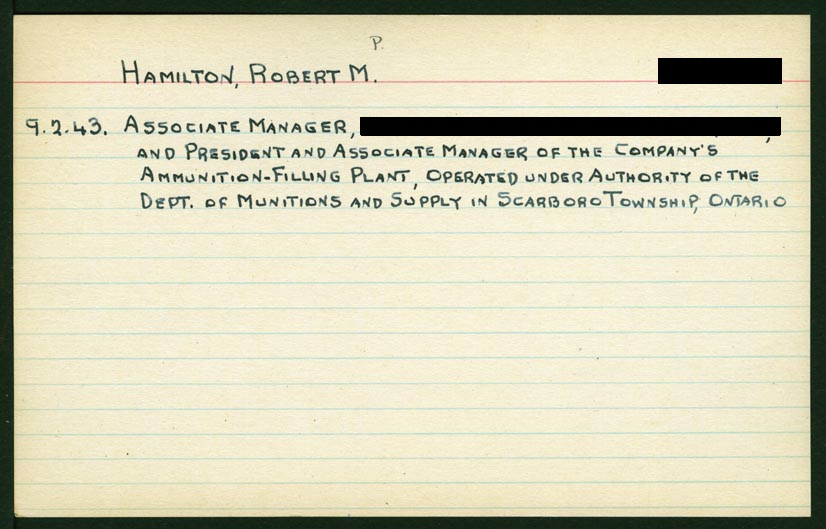 P.
HAMILTON, ROBERT M.
9.2.43. ASSOCIATE MANAGER,
AND PRESIDENT AND ASSOCIATE MANAGER OF THE COMPANY'S
AMMUNITION-FILLING PLANT, OPERATED UNDER AUTHORITY OF THE
DEPT. OF MUNITIONS AND SUPPLY IN SCARBORO TOWNSHIP, ONTARIO